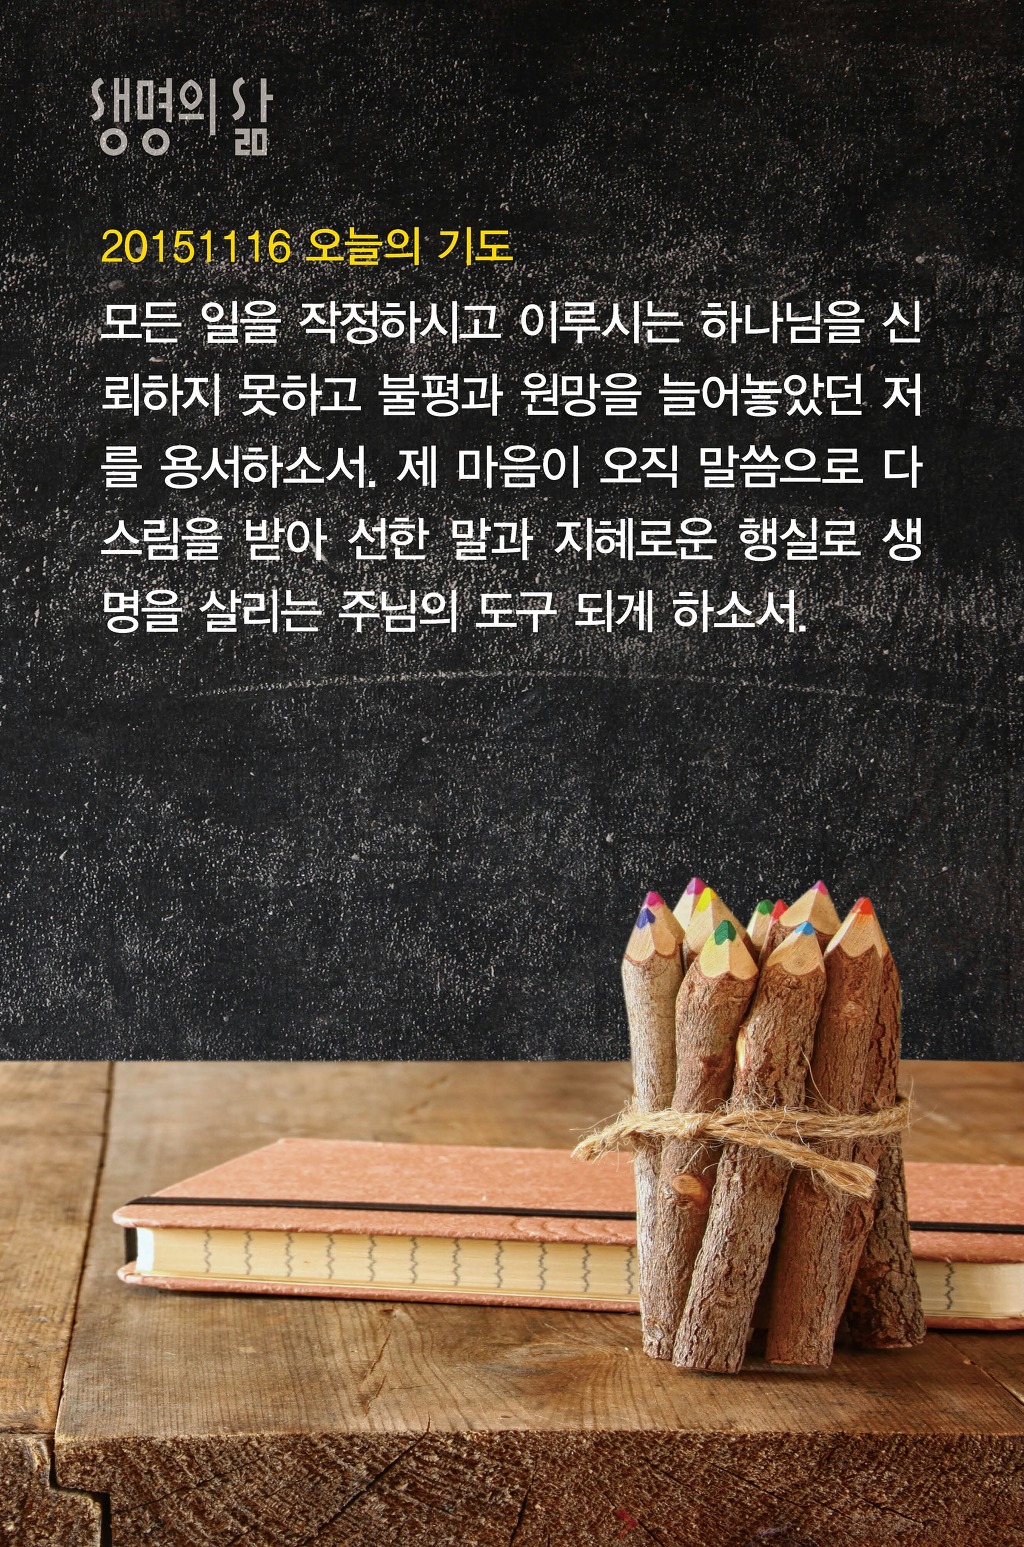 생명의 삶
20151116 오늘의 기도
모든 일을 작정하시고 이루시는 하나님을 신
뢰하지 못하고 불평과 원망을 늘어놓았던 저
를 용서하소서. 제 마음이 오직 말씀으로 다
스림을 받아 선한 말과 지혜로운 행실로 생
명을 살리는 주님의 도구 되게 하소서.